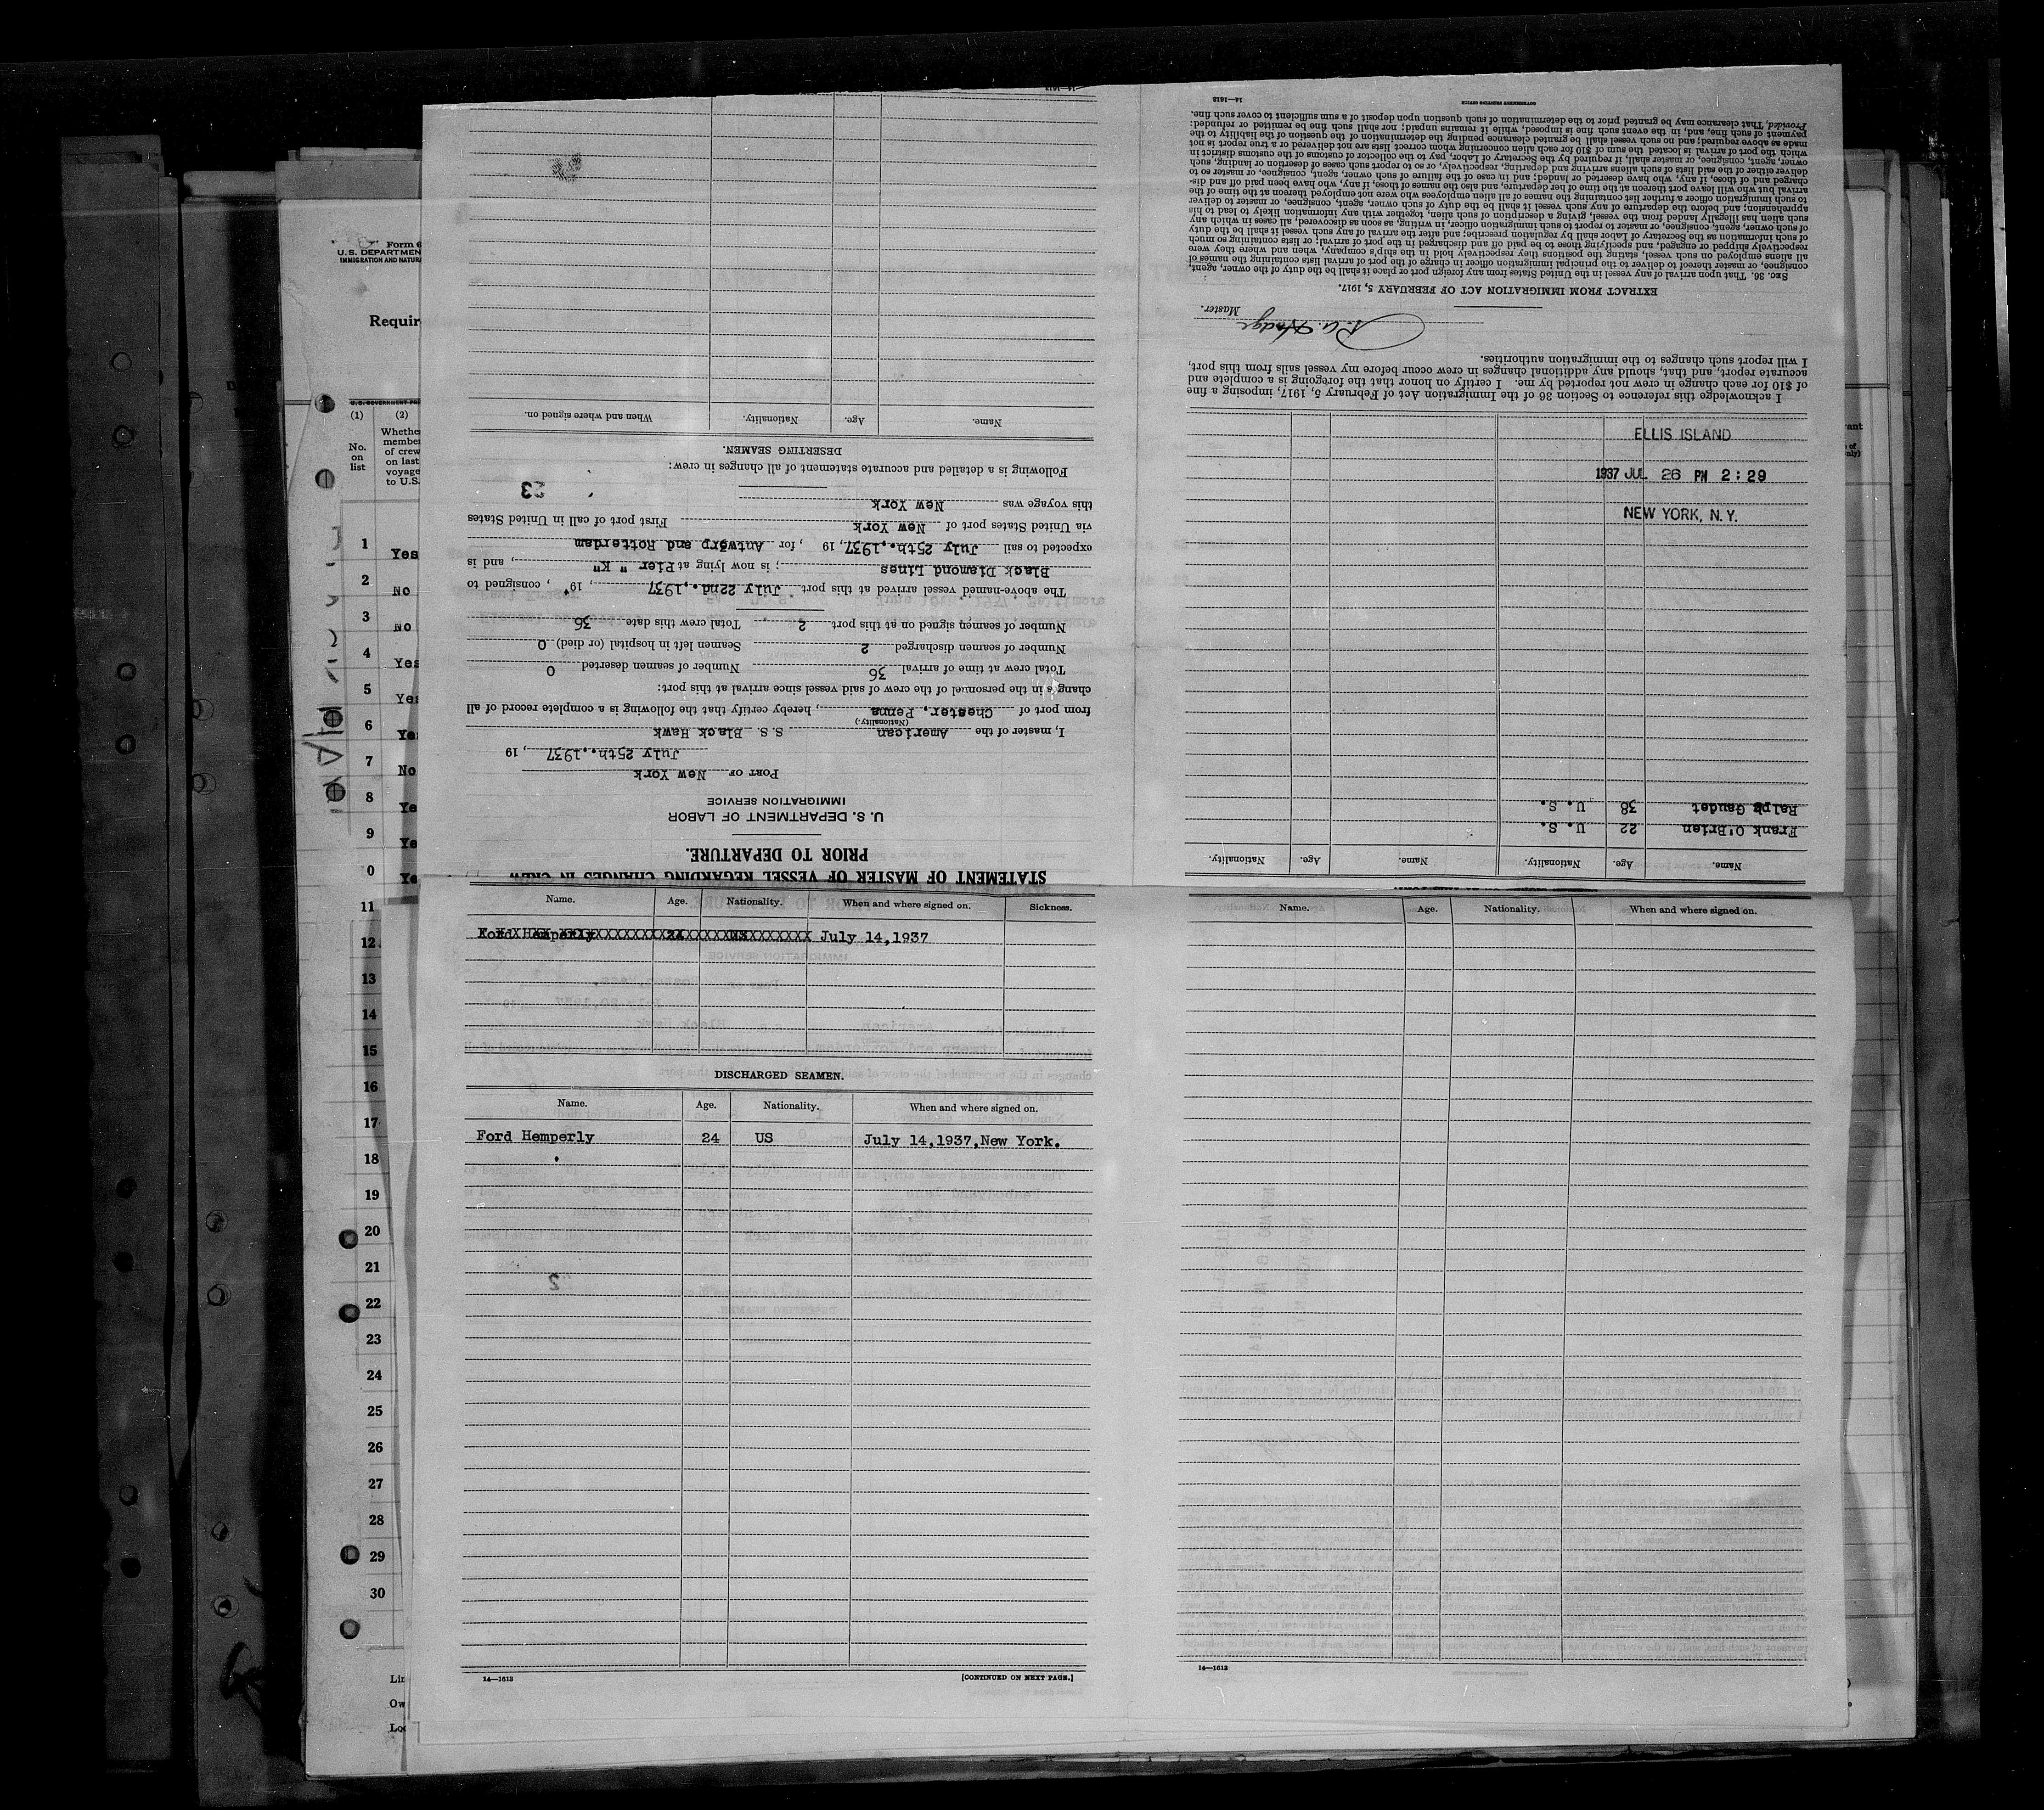 Form 6
U.S. DEPARTMEN
IMMIGRATION AND NATURA
Requir
U.S. GOVERNMENT PR
(1) (2)
No. on list
Whethe
membe
of crew
on last
voyage
to U.S.
1 Yes
2 No
3 No
4 Yes
5 Yes
6 Yes
7 No
8 Ye
9 Ye
0 Ye
11
12
13
14
15
16
17
18
19
20
21
22
23
24
25
26
27
28
29
30
Lin
Ow
Loc
STATEMENT OF MASTER OF VESSEL REGARDING CHANGES IN CREW
PRIOR TO DEPARTURE.
U. S. DEPARTMENT OF LABOR
IMMIGRATION SERVICE
PORT OF New York
July 25th.,1937, 19
I, master of the American S. S. Black Hawk
(Nationality.)
from port of Chester, Penna, hereby certify that the following is a complete record of all
changes in the personnel of the crew of said vessel since arrival at this port:
Total crew at time of arrival 36 Number of seamen deserted 0
Number of seamen discharged 2 Seamen left in hospital (or died) 0
Number of seamen signed on at this port 2 Total crew this date 36
The above-named vessel arrived at this port July 22nd.,1937, 19 , consigned to
Black Diamond Lines; is now lying at Pier " K", and is
expected to sail July 25th.,1937, 19 , for Antwerp and Rotterdam
via United States port of New York First port of call in United States
this voyage was New York
23
Following is a detailed and accurate statement of all changes in crew:
DESERTING SEAMEN.
Name. Age. Nationality. When and where signed on.
14—1613
Name. Age. Nationality. Name. Age. Nationality.
Frank O'Brien 22 U. S.
Ralph Gaudet 38 U. S.
ELLIS ISLAND
1937 JUL 26 PM 2:29
NEW YORK, N.Y.
I acknowledge this reference to Section 36 of the Immigration Act of February 5, 1917, imposing a fine
of $10 for each change in crew not reported by me. I certify on honor that the foregoing is a complete and
accurate report, and that, should any additional changes in crew occur before my vessel sails from this port,
I will report such changes to the immigration authorities.
Hodge
Master.
EXTRACT FROM IMMIGRATION ACT OF FEBRUARY 5, 1917.
SEC. 36. That upon arrival of any vessel in the United States from any foreign port or place it shall be the duty of the owner, agent,
consignee, or master thereof to deliver to the principal immigration officer in charge of the port of arrival lists containing the names of
all aliens employed on such vessel, stating the positions they respectively hold in the ship's company, when and where they were
respectively shipped or engaged, and specifying those to be paid off and discharged in the port of arrival; or lists containing so much
of such information as the Secretary of Labor shall by regulation prescribe; and after the arrival of any such vessel it shall be the duty
of such owner, agent, consignee, or master to report to such immigration officer, in writing, as soon as discovered, all cases in which any
such alien has illegally landed from the vessel, giving a description of such alien, together with any information likely to lead to his
apprehension; and before the departure of any such vessel it shall be the duty of such owner, agent, consignee, or master to deliver
to such immigration officer a further list containing the names of all alien employees who were not employed thereon at the time of the
arrival but who will leave port thereon at the time of her departure, and also the names of those, if any, who have been paid off and dis-
charged and of those, if any, who have deserted or landed; and in case of the failure of such owner, agent, consignee, or master so to
deliver either of the said lists of such aliens arriving and departing, respectively, or so to report such cases of desertion or landing, such
owner, agent, consignee, or master shall, if required by the Secretary of Labor, pay to the collector of customs of the customs district in
which the port of arrival is located the sum of $10 for each alien concerning whom correct lists are not delivered or a true report is not
made as above required; and no such vessel shall be granted clearance pending the determination of the question of the liability to the
payment of such fine, and, in the event such fine is imposed, while it remains unpaid; nor shall such fine be remitted or refunded:
Provided, That clearance may be granted prior to the determination of such question upon deposit of a sum sufficient to cover such fine.
14—1613 GOVERNMENT PRINTING OFFICE
Name. Age. Nationality. When and where signed on. Sickness.
Ford Hemperly 24 US July 14,1937
DISCHARGED SEAMEN.
Name. Age. Nationality. When and where signed on.
Ford Hemperly 24 US July 14,1937,New York.
2
14—1613 [CONTINUED ON NEXT PAGE.]
Name. Age. Nationality. When and where signed on.
14—1613